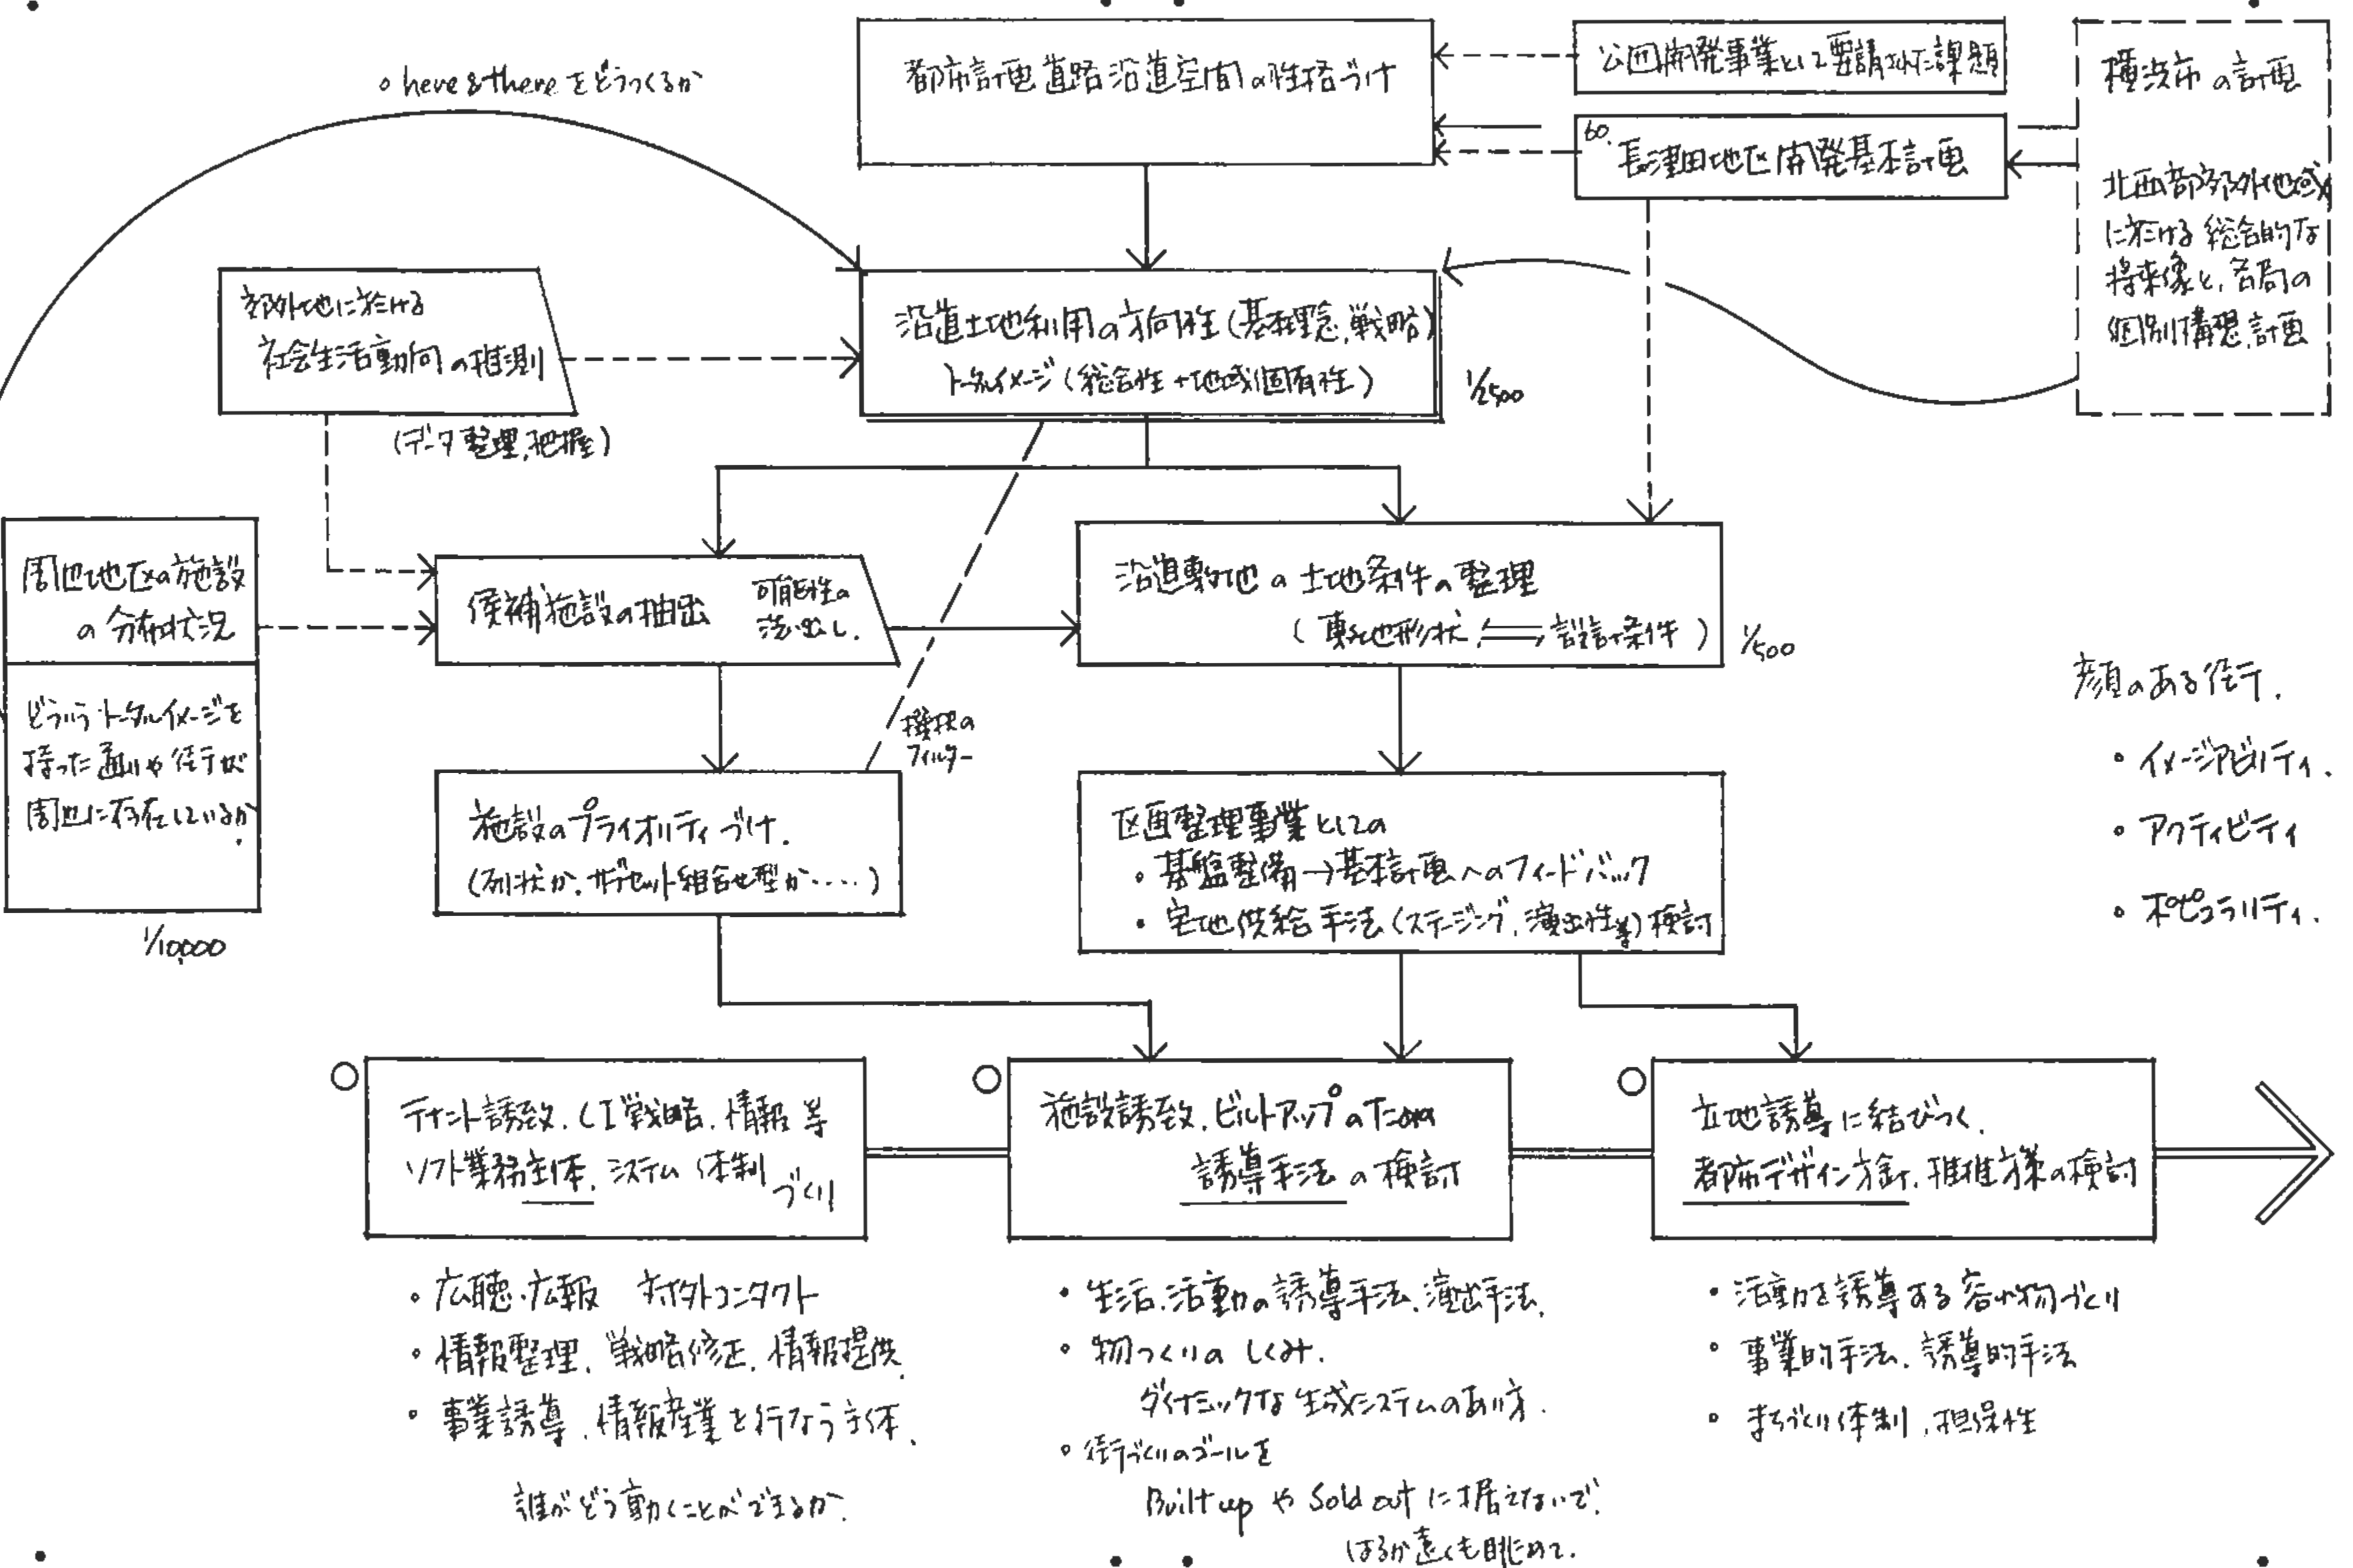 都市計画道路沿道空間の性格づけ
公団開発事業として要請された課題
60.
長津田地区開発基本計画
横浜市の計画
北西部郊外地域
に於ける総合的な
将来像と、各局の
個別構想、計画
○ here & there をどうつくるか
郊外地に於ける
社会生活動向の推測
(データ整理、把握)
沿道土地利用の方向性(基本理念、戦略)
トータルイメージ(総合性+地域固有性)
1/2500
周辺地区の施設
の分布状況
どういうトータルイメージを
持った通りや街が
周辺に存在しているか.
1/10,000
候補施設の抽出
可能性の
洗い出し.
沿道敷地の土地条件の整理
(敷地形状 ⇄ 設計条件)
1/500
選択の
フィルター
施設のプライオリティづけ.
(列状か、サブセット組合せ型か‥‥)
区画整理事業としての
・基盤整備→基本計画へのフィードバック
・宅地供給手法(ステージング、演出性等)検討
顔のある街.
○ イメージアビリティ.
○ アクティビティ
○ ポピュラリティ.
○
テナント誘致、CI戦略、情報等
ソフト業務主体、システム体制づくり
○
施設誘致、ビルトアップのための
誘導手法の検討
○
立地誘導に結びつく、
都市デザイン方針、推進方策の検討
○ 広聴・広報 対外コンタクト
○ 情報整理、戦略修正、情報提供.
○ 事業誘導、情報産業を行なう主体.
誰がどう動くことができるか.
・生活、活動の誘導手法、演出手法.
○ 物つくりのしくみ.
ダイナミックな生成システムのあり方.
○ 街づくりのゴールを
Built up や Sold out に据えないで.
はるか遠くも眺めて.
・活動を誘導する容れ物づくり
○ 事業的手法、誘導的手法
○ まちづくり体制、担保性